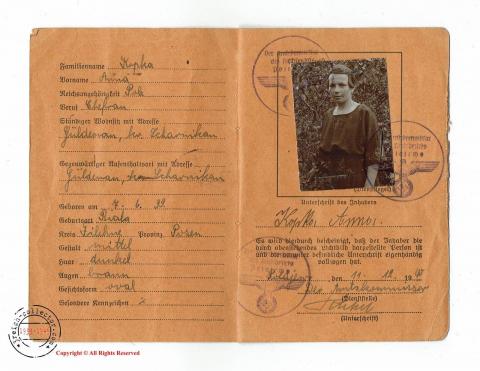 Familienname Kopka
Vorname Anna
Reichsangehörigkeit Pole
Beruf Ehefrau
Ständiger Wohnsitz mit Adresse
Güldenau, Scharnikau
Gegenwärtiger Aufenthaltsort mit Adresse
Güldenau, Scharnikau
Geboren am 7. 6.
Geburtsort
Kreis Filehne Provinz Posen
Gestalt mittel
Haar dunkel
Augen braun
Gesichtsform oval
Besondere Kennzeichen
Unterschrift des Inhabers
Kopka Anna.
Es wird hierdurch bescheinigt, daß der Inhaber die
durch obenstehendes Lichtbild dargestellte Person ist
und die darunter befindliche Unterschrift eigenhändig
vollzogen hat.
den 11. 12. 19
Der Amtskommissar
(Dienststelle)
(Unterschrift)
reich-collector.com
1933-1945
Copyright © All Rights Reserved